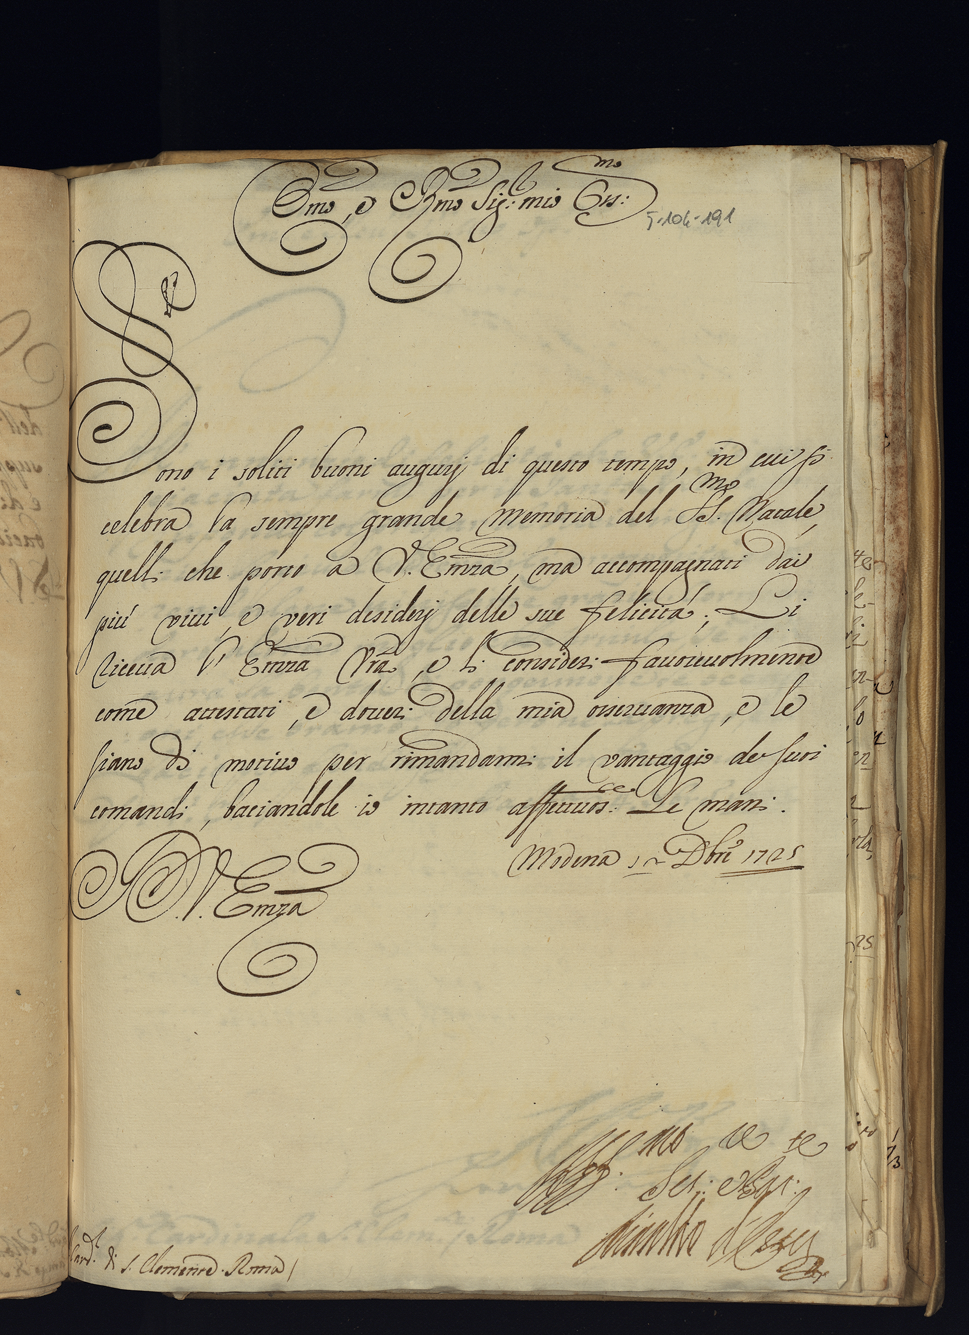 Emo, e Rmo Sig.r mio Oss.mo
5-104-191
Sono i soliti buoni augurij di questo tempo, in cui si
celebra la sempre grande memoria del SS.mo Natale,
quelli che porto a V. Emza, ma accompagnati dai
più vivi, e veri desiderij delle sue felicità. Li
riceva l'Emza Vra, e li consideri favorevolmente
come attestati, e doveri della mia osservanza, e le
siano di motivo per rimandarmi il vantaggio de suoi
comandi, baciandole io intanto affettuos.te Le mani.
Modena 12 Dbre 1725
V. Emza
Aff.mo
Rinaldo d'Este
Card.l di S. Clemente Roma